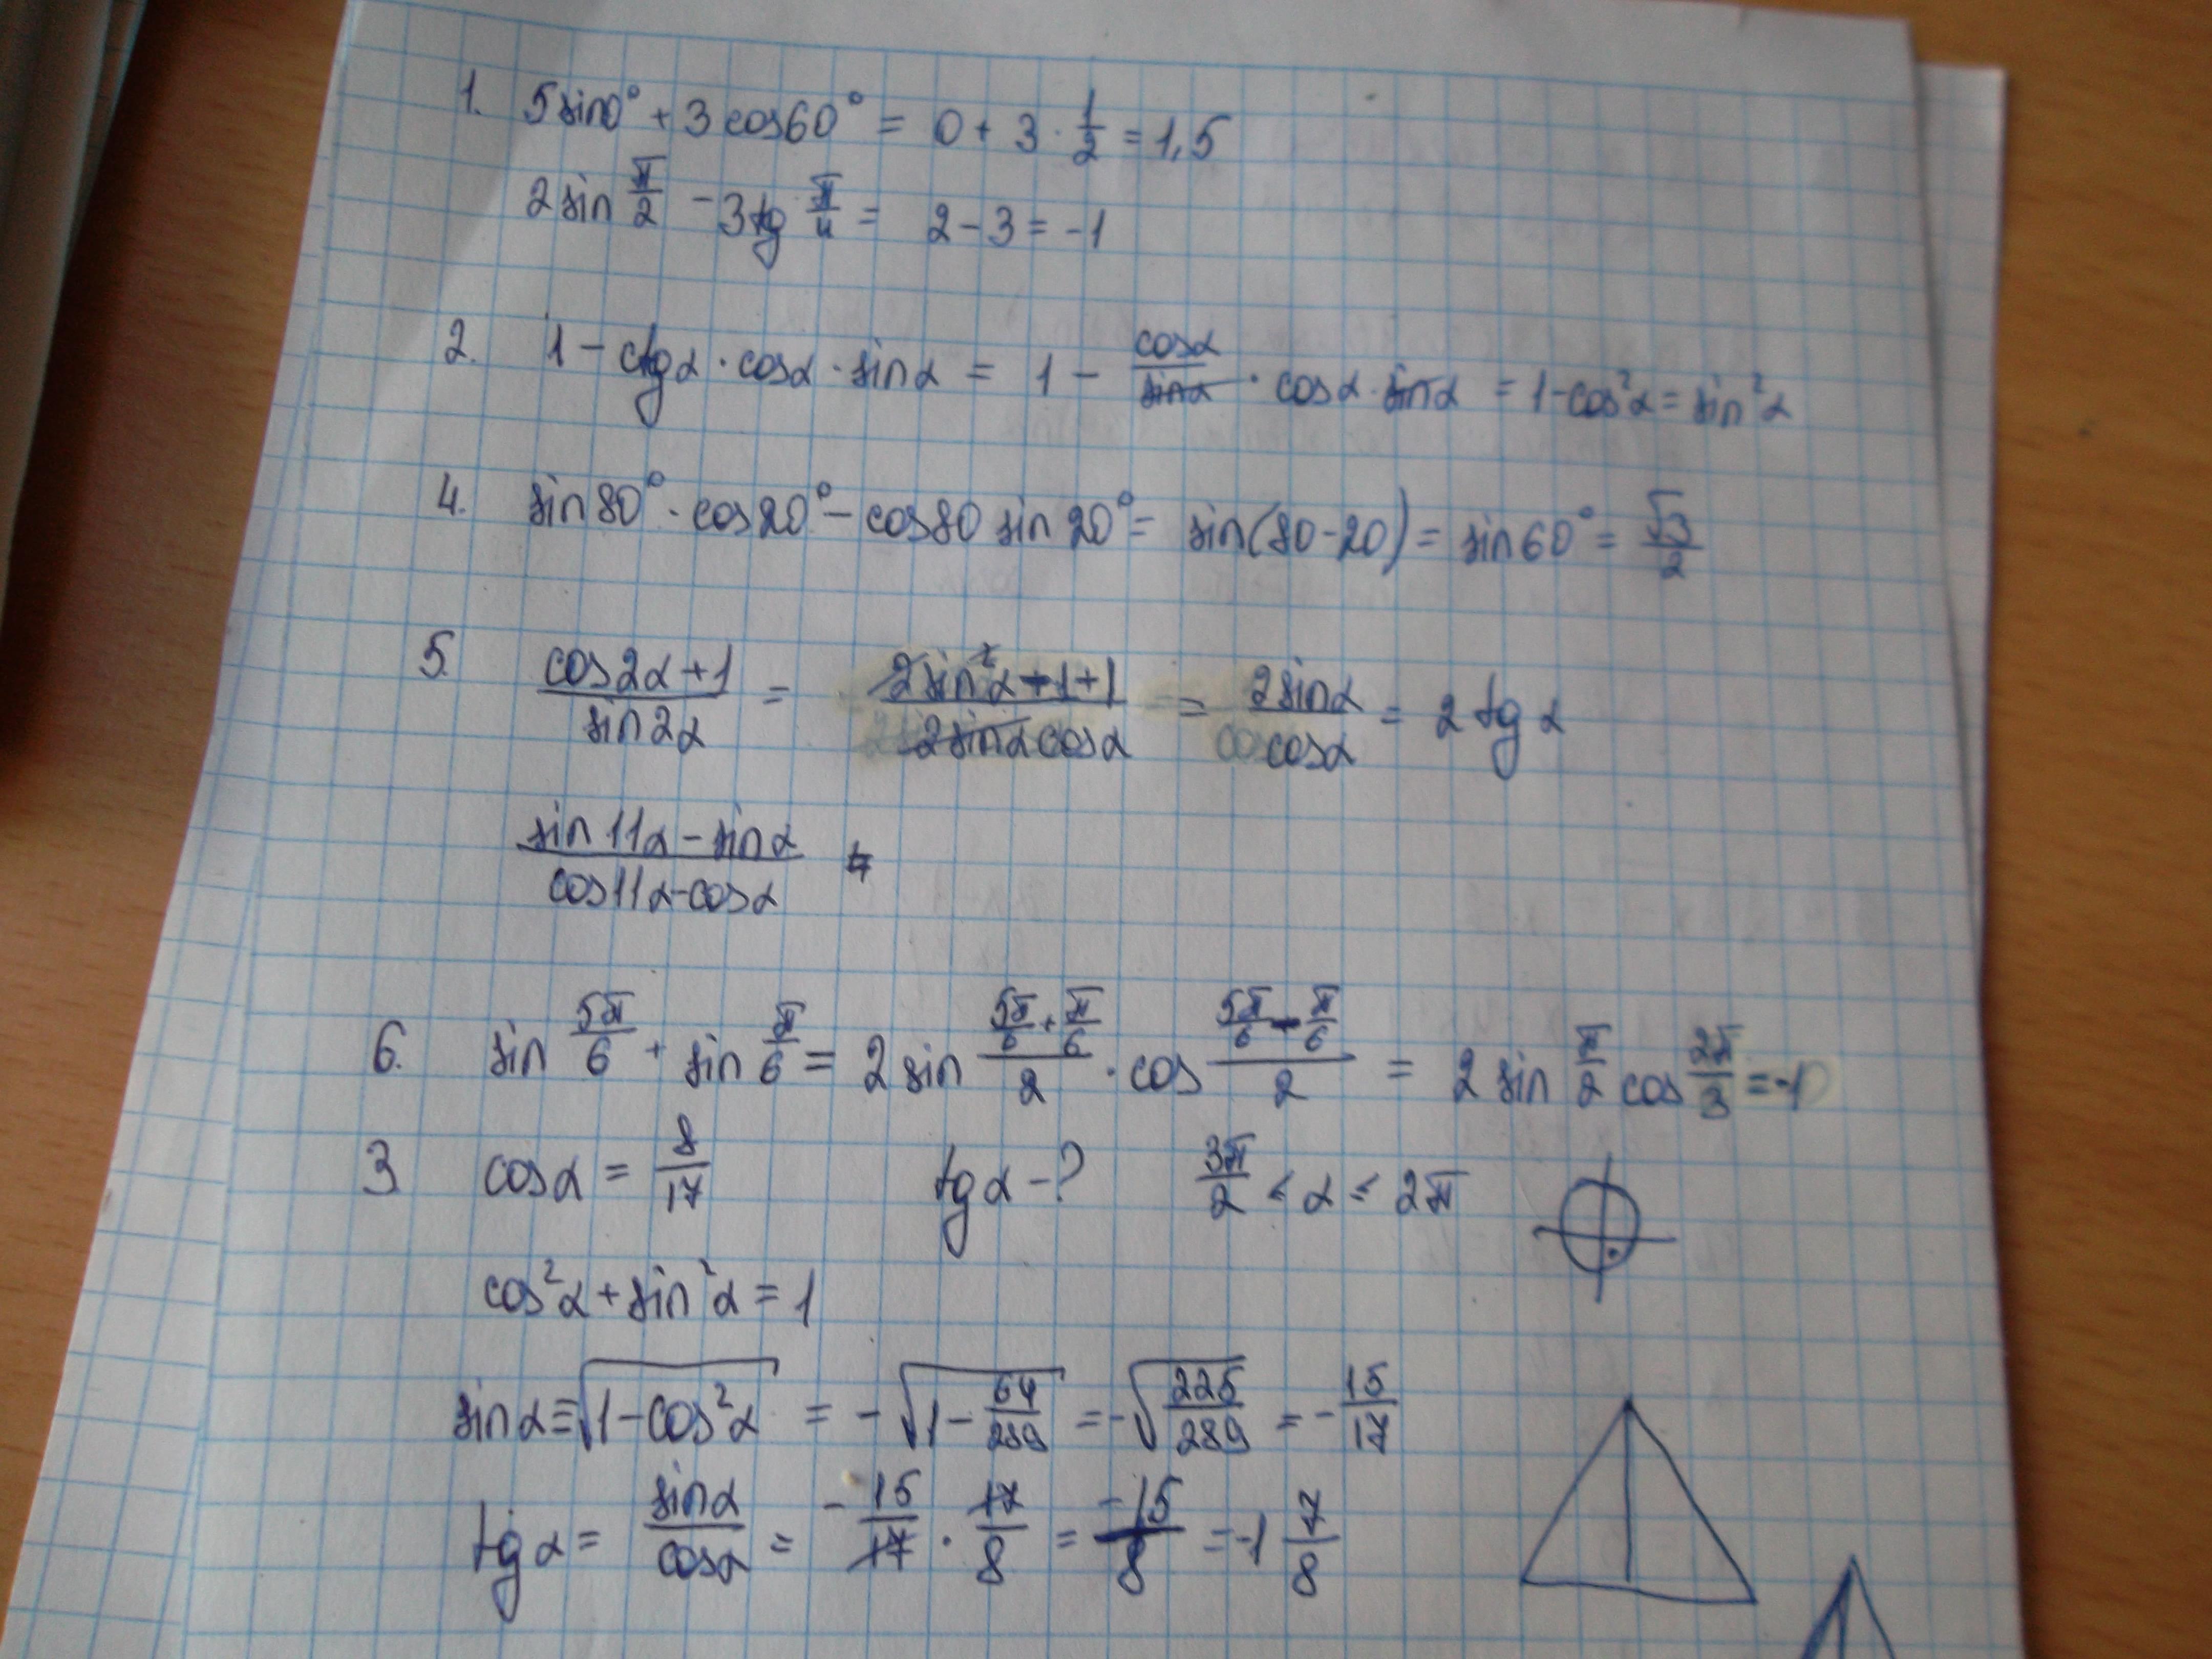 1. 5sin0° + 3cos60° = 0 + 3 · 1/2 = 1,5
2sin π/2 - 3tg π/4 = 2 - 3 = -1
2. 1 - ctgα · cosα · sinα = 1 - cosα/sinα · cosα · sinα = 1 - cos²α = sin²α
4. sin80° · cos20° - cos80 sin20° = sin(80-20) = sin60° = √3/2
5. cos2α+1/sin2α = 2sin²α-1+1/2sinαcosα = 2sinα/cosα = 2tgα
sin11α - sinα/cos11α - cosα
6. sin 5π/6 + sin π/6 = 2sin (5π/6 + π/6)/2 · cos (5π/6 - π/6)/2 = 2sin π/2 cos 2π/3 = -1
3 cosα = 8/17 tgα - ? 3π/2 < α < 2π
cos²α + sin²α = 1
sinα = √(1-cos²α) = -√(1 - 64/289) = -√(225/289) = -15/17
tgα = sinα/cosα = -15/17 · 17/8 = -15/8 = -1 7/8